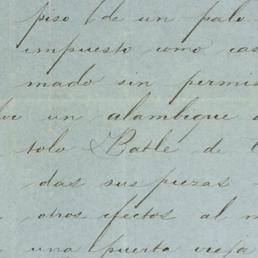 piso de un palo
impuesto como cas
mado sin permis
un alambique
tolo Batle de
das sus piezas
otros efectos al
una puerta vieja